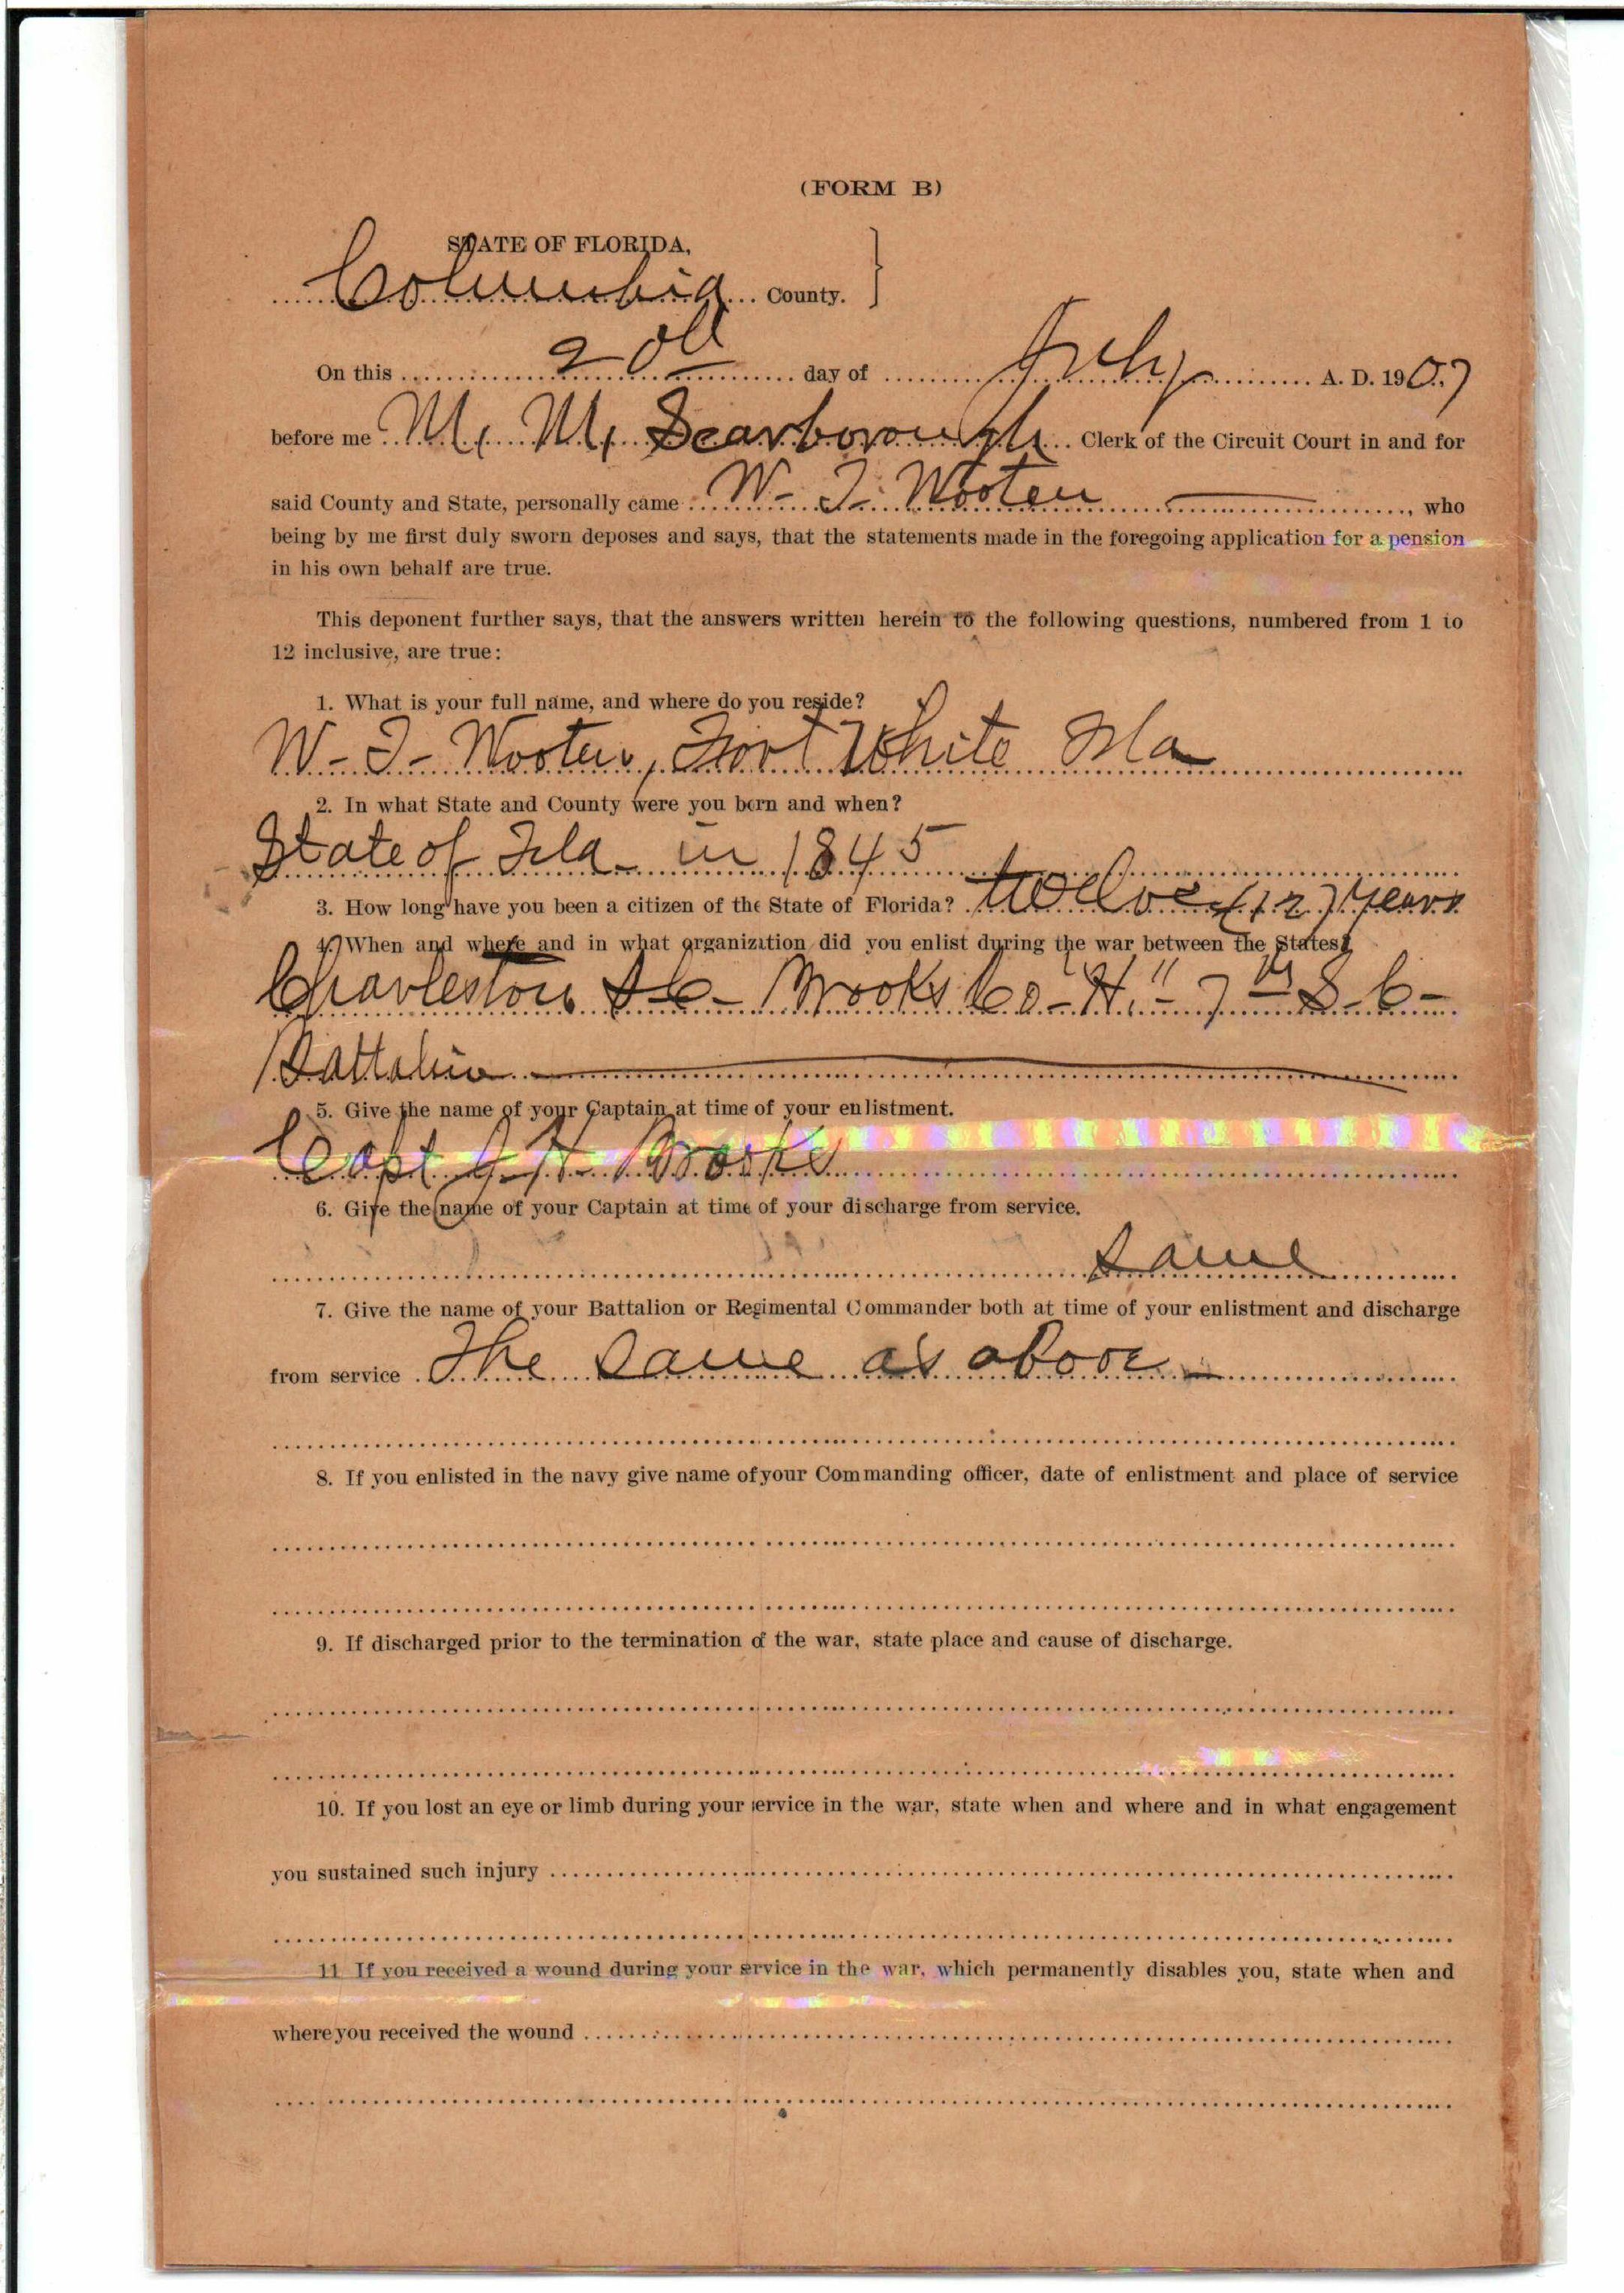 (FORM B)
STATE OF FLORIDA,
Columbia County.
On this 20th day of July A. D. 1907
before me M. M. Scarborough Clerk of the Circuit Court in and for
said County and State, personally came W. T. Wooten, who
being by me first duly sworn deposes and says, that the statements made in the foregoing application for a pension
in his own behalf are true.
This deponent further says, that the answers written herein to the following questions, numbered from 1 to
12 inclusive, are true:
1. What is your full name, and where do you reside?
W- T- Wooten, Fort White Fla
2. In what State and County were you born and when?
State of Fla- in 1845
3. How long have you been a citizen of the State of Florida? twelve (12) years
4. When and where and in what organization did you enlist during the war between the States?
Charleston S-C- Brooks Co- "H"- 7th S-C-
Battalion
5. Give the name of your Captain at time of your enlistment.
Capt J- H- Brooks
6. Give the name of your Captain at time of your discharge from service.
Same
7. Give the name of your Battalion or Regimental Commander both at time of your enlistment and discharge
from service The Same as above-
8. If you enlisted in the navy give name of your Commanding officer, date of enlistment and place of service
9. If discharged prior to the termination of the war, state place and cause of discharge.
10. If you lost an eye or limb during your service in the war, state when and where and in what engagement
you sustained such injury
11 If you received a wound during your service in the war, which permanently disables you, state when and
where you received the wound